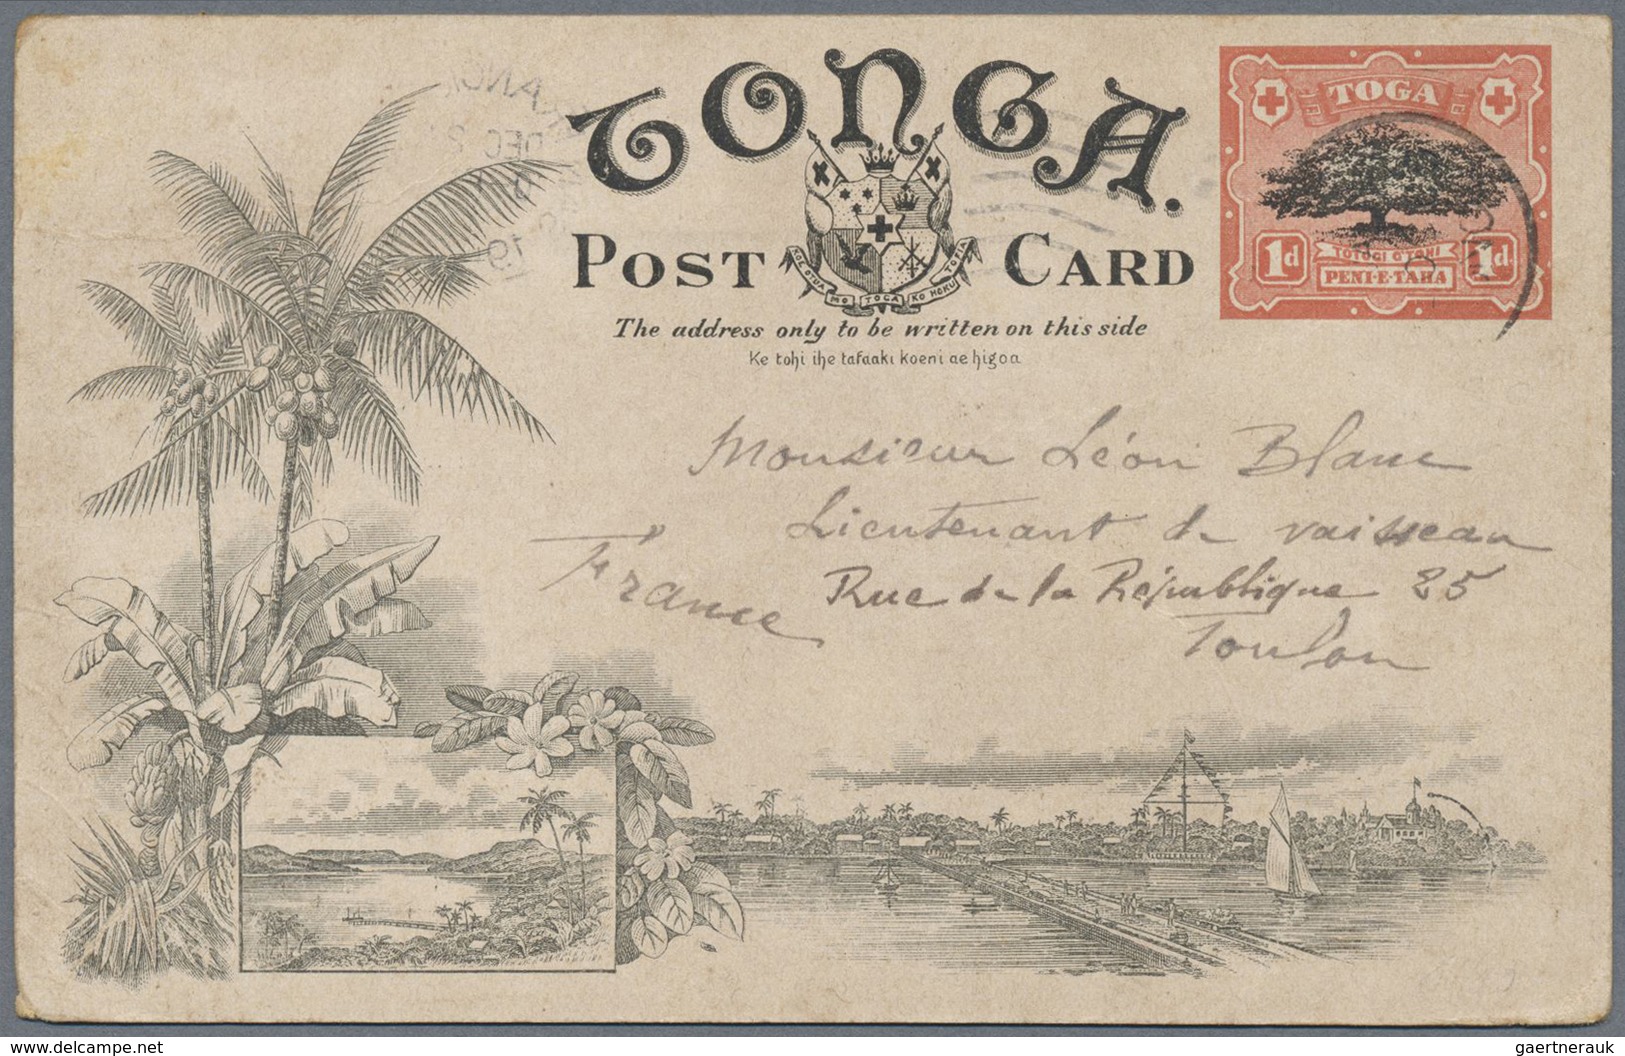 TONGA.
POST CARD
KOE OTUA MO TOGA KO HOKU TOFIA
The address only to be written on this side
Ke tohi ihe tafaaki koeni ae higoa
TOGA
1d 1d
PENI-E-TAHA
DEC 2
19
Monsieur Léon Blanc
Lieutenant de vaisseau
Rue de la République 25
Toulon
France
delcampe.net
gaertnerauk